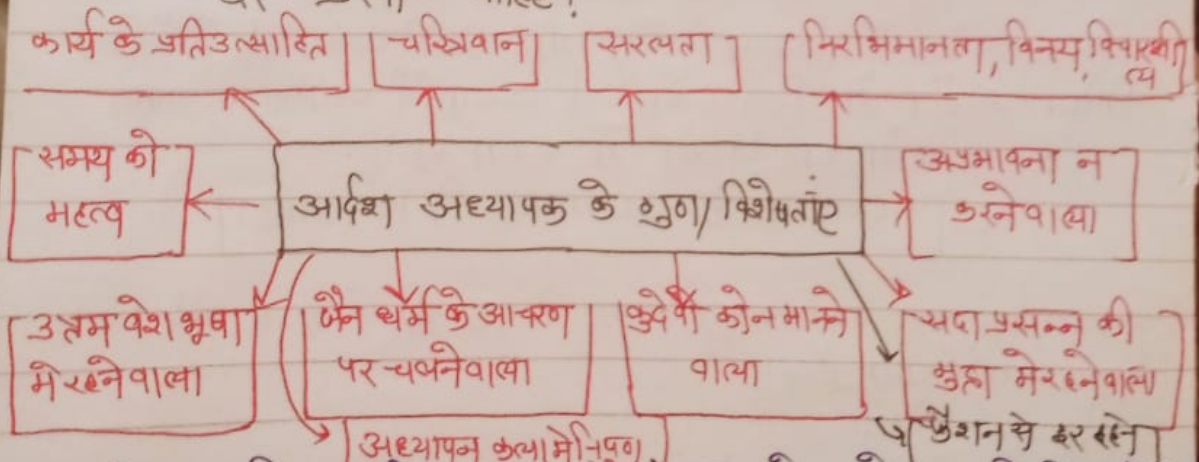 कार्य के प्रतिउत्साहित
चरित्रवान
सरलता
निरभिमानता, विनय,
त्य
समय को
महत्व
आर्दश अध्यापक के गुण/विशेषताएं
अप्रभावना न
करनेवाला
उत्तम वेशभूषा
मे रहनेवाला
जैन धर्म के आचरण
पर चलनेवाला
कुदेवो को न मानने
वाला
सदा प्रसन्न की
मुद्रा मे रहनेवाला
फैशन से दूर रहने
अध्यापन कला मे निपुण